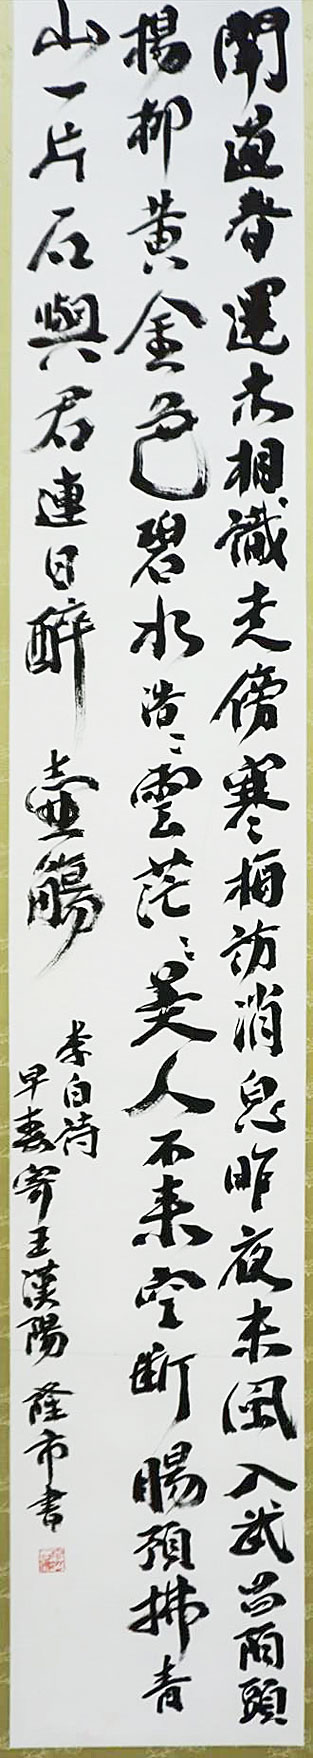 聞道春還未相識走傍寒梅訪消息昨夜東風入武昌陌頭
楊柳黄金色碧水浩〻雲茫〻美人不来空断腸預拂青
山一片石與君連日醉壺觴
李白詩
早春寄王漢陽 隆市書